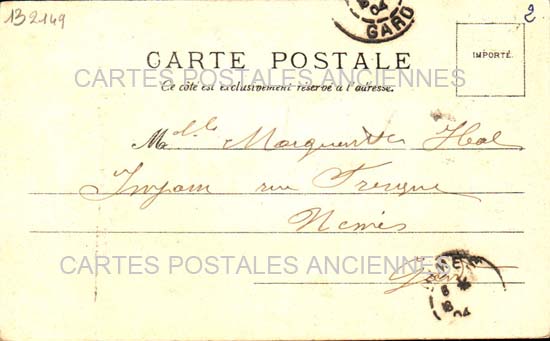 132149
2
04
GARD
CARTE POSTALE
IMPORTÉ
CARTES POSTALES ANCIENNES
Ce côté est exclusivement réservé à l'adresse.
Mdlle Marguerite
rue Fresque
Nimes
CARTES POSTALES ANCIENNES
Gard
8
16
04